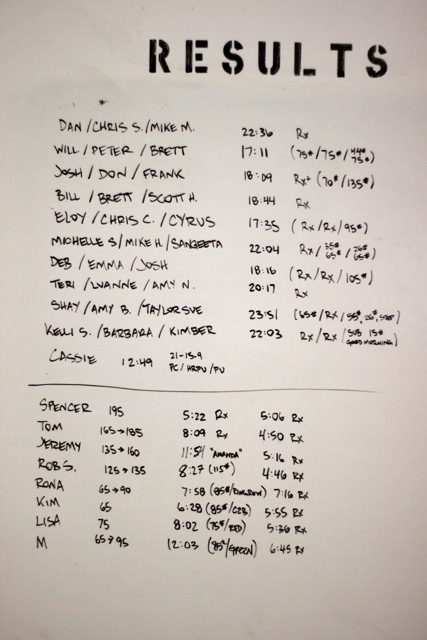 RESULTS
DAN / CHRIS S. / MIKE M. 22:36 Rx
WILL / PETER / BRETT 17:11 (75# / 75# / 44# 75#)
JOSH / DON / FRANK 18:09 Rx+ (70# / 135#)
BILL / BRETT / SCOTT H. 18:44 Rx
ELOY / CHRIS C. / CYRUS 17:35 (Rx / Rx / 95#)
MICHELLE S / MIKE H. / SANGEETA 22:04 Rx / 35# 65# / 26# 65#
DEB / EMMA / JOSH 18:16 (Rx / Rx / 105#)
TERI / LUANNE / AMY N. 20:17 Rx
SHAY / AMY B. / TAYLOR SUE 23:51 (65# / Rx / 55#, 26#,
KELLI S. / BARBARA / KIMBER 22:03 Rx / Rx / (SUB 15# GOOD MORNING)
CASSIE 12:49 21-15-9 PC / HRPU / PU
SPENCER 195 5:22 Rx 5:06 Rx
TOM 165→185 8:09 Rx 4:50 Rx
JEREMY 135→160 11:54 "AMANDA" 5:16 Rx
ROB S. 125→135 8:27 (115#) 4:46 Rx
RONA 65→90 7:58 (85#/ 7:16 Rx
KIM 65 6:28 (85#/C2B) 5:55 Rx
LISA 75 8:02 (75#/RED) 5:36 Rx
M 65→95 12:03 (85#/GREEN) 6:45 Rx